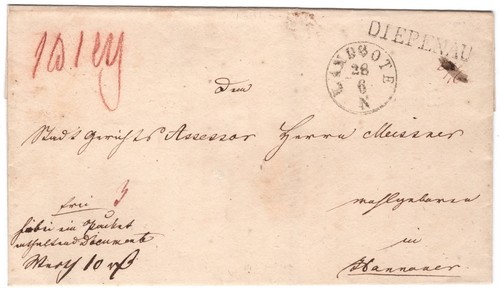 DIEPENAU
LANDBOTE
28
6
N
dem
Stadt Gerichts Assessor Herrn Meissner
wohlgeboren
in
Hannover
frei
hiebei ein Packet
enthaltend Documente
Werth 10